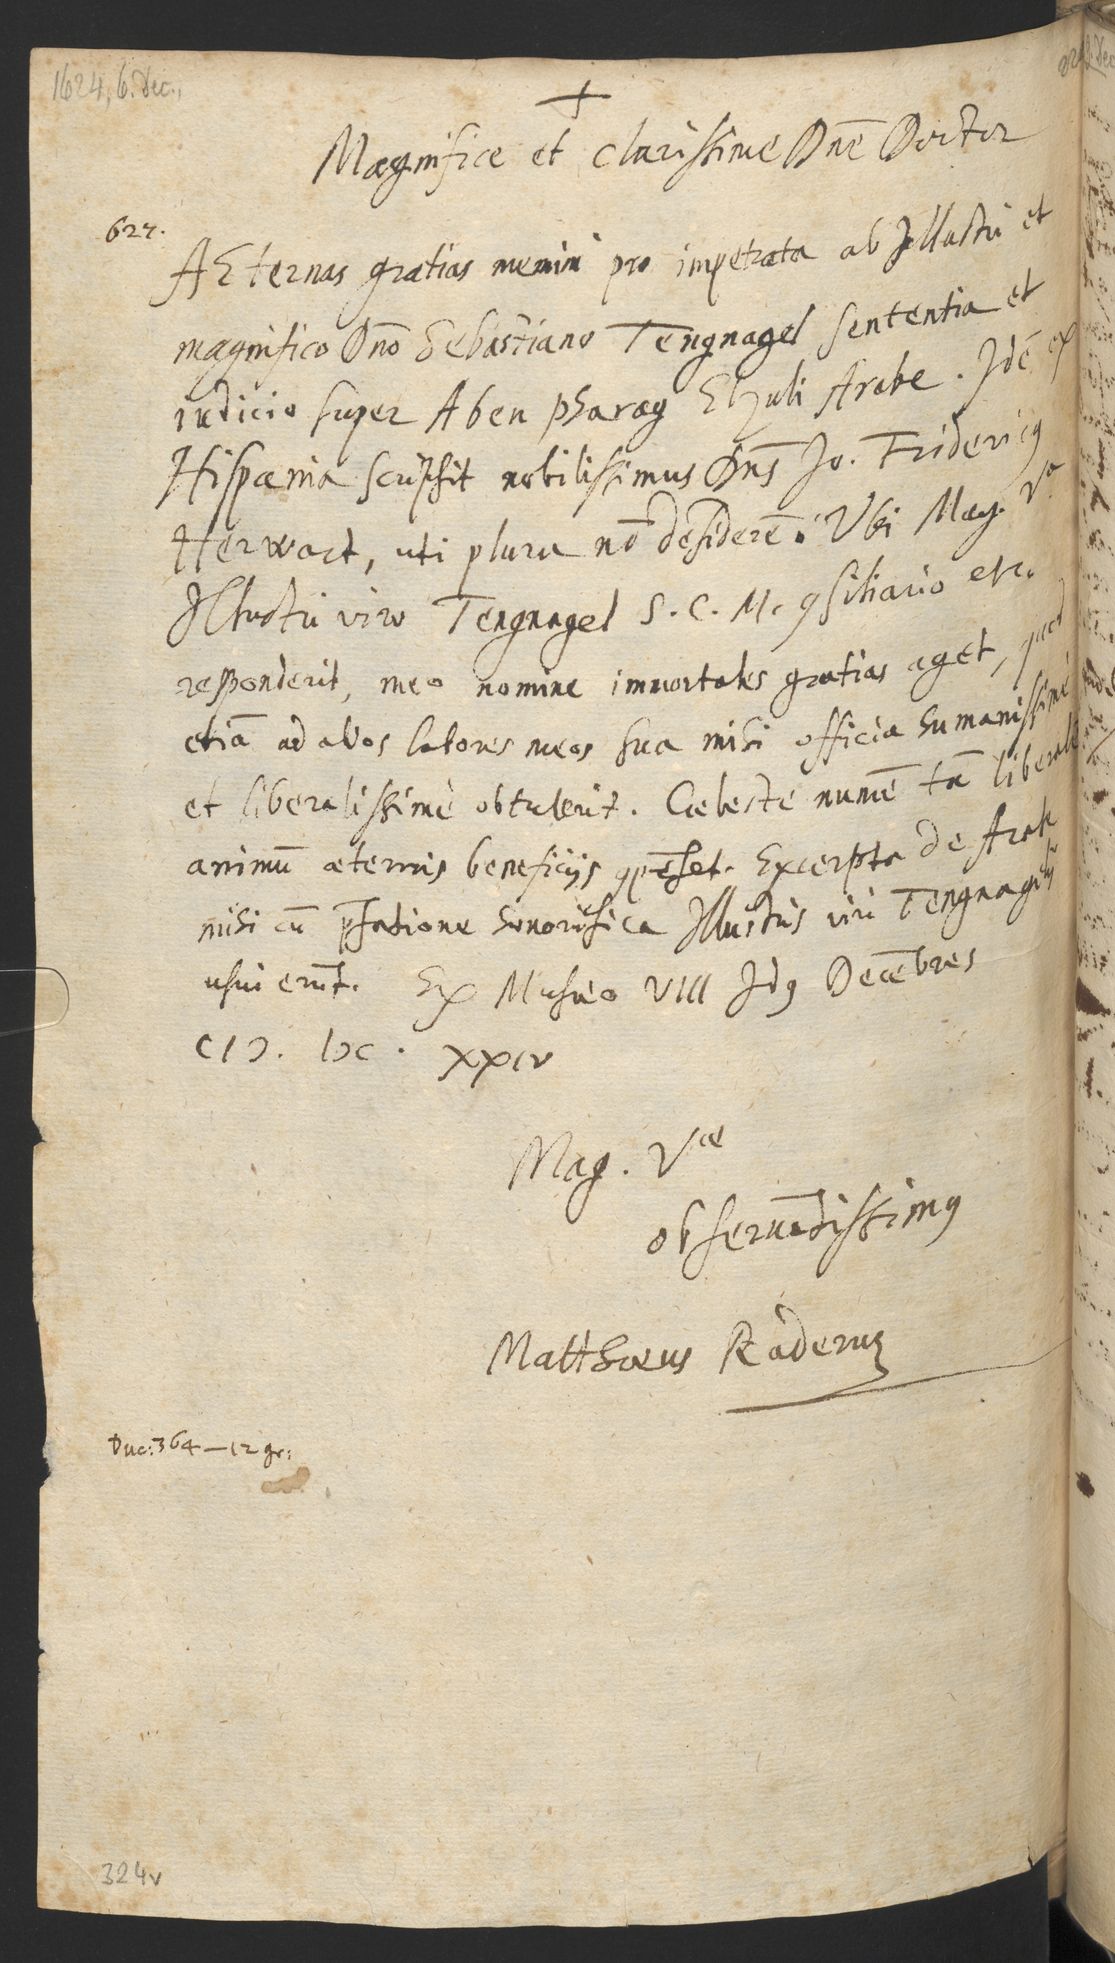 1624, 6. Dec.,
+
Magnifice et clarissime Dnē Doctor
627.
AEternas gratias memini pro impetrata ab Illustri et
magnifico Dnō Sebastiano Tengnagel sententia et
iudicio super Aben pharag Elzuli Arabe. Idē ex
Hispania scripsit nobilissimus Dns̄ Jo. Fridericꝰ
Herwart, uti plura nō desiderē. Ubi Mag. Vᵃ
Illustri viro Tengnagel S. C. M. ꝯsiliario etc.
responderit, meo nomine immortales gratias aget, quod
etiā ad alios labores meos sua mihi officia humanissimè
et liberalissimè obtulerit. Cæleste numē tā liberalē
animū æternis beneficijs ꝯpēset. Excerpta de Arabe
mihi cū p̄fatione honorifica Illustris viri Tengnagelij
usui erūt. Ex Musæo VIII Idꝰ Decēbres
CIↃ. IↃC. XXIV
Mag. Vᵃᵉ
obseruādissimꝰ
Matthæus Raderus
Duc: 364 — 12 gr:
324v